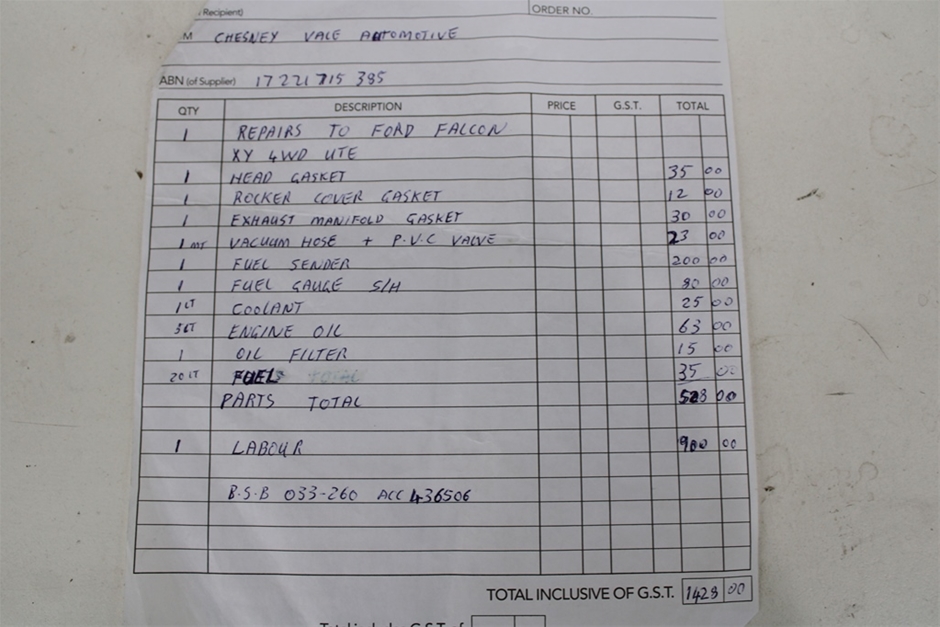 (Recipient) ORDER NO.
M CHESNEY VALE AUTOMOTIVE
ABN (of Supplier) 17 221 715 385
QTY DESCRIPTION PRICE G.S.T. TOTAL
1 REPAIRS TO FORD FALCON
XY 4WD UTE
1 HEAD GASKET 35 00
1 ROCKER COVER GASKET 12 00
1 EXHAUST MANIFOLD GASKET 30 00
1 MT VACUUM HOSE + P.V.C VALVE 23 00
1 FUEL SENDER 200 00
1 FUEL GAUGE S/H 90 00
1 LT COOLANT 25 00
3 LT ENGINE OIL 63 00
1 OIL FILTER 15 00
20 LT FUEL 35 00
PARTS TOTAL 528 00
1 LABOUR 900 00
B.S.B 033-260 ACC 436506
TOTAL INCLUSIVE OF G.S.T. 1428 00